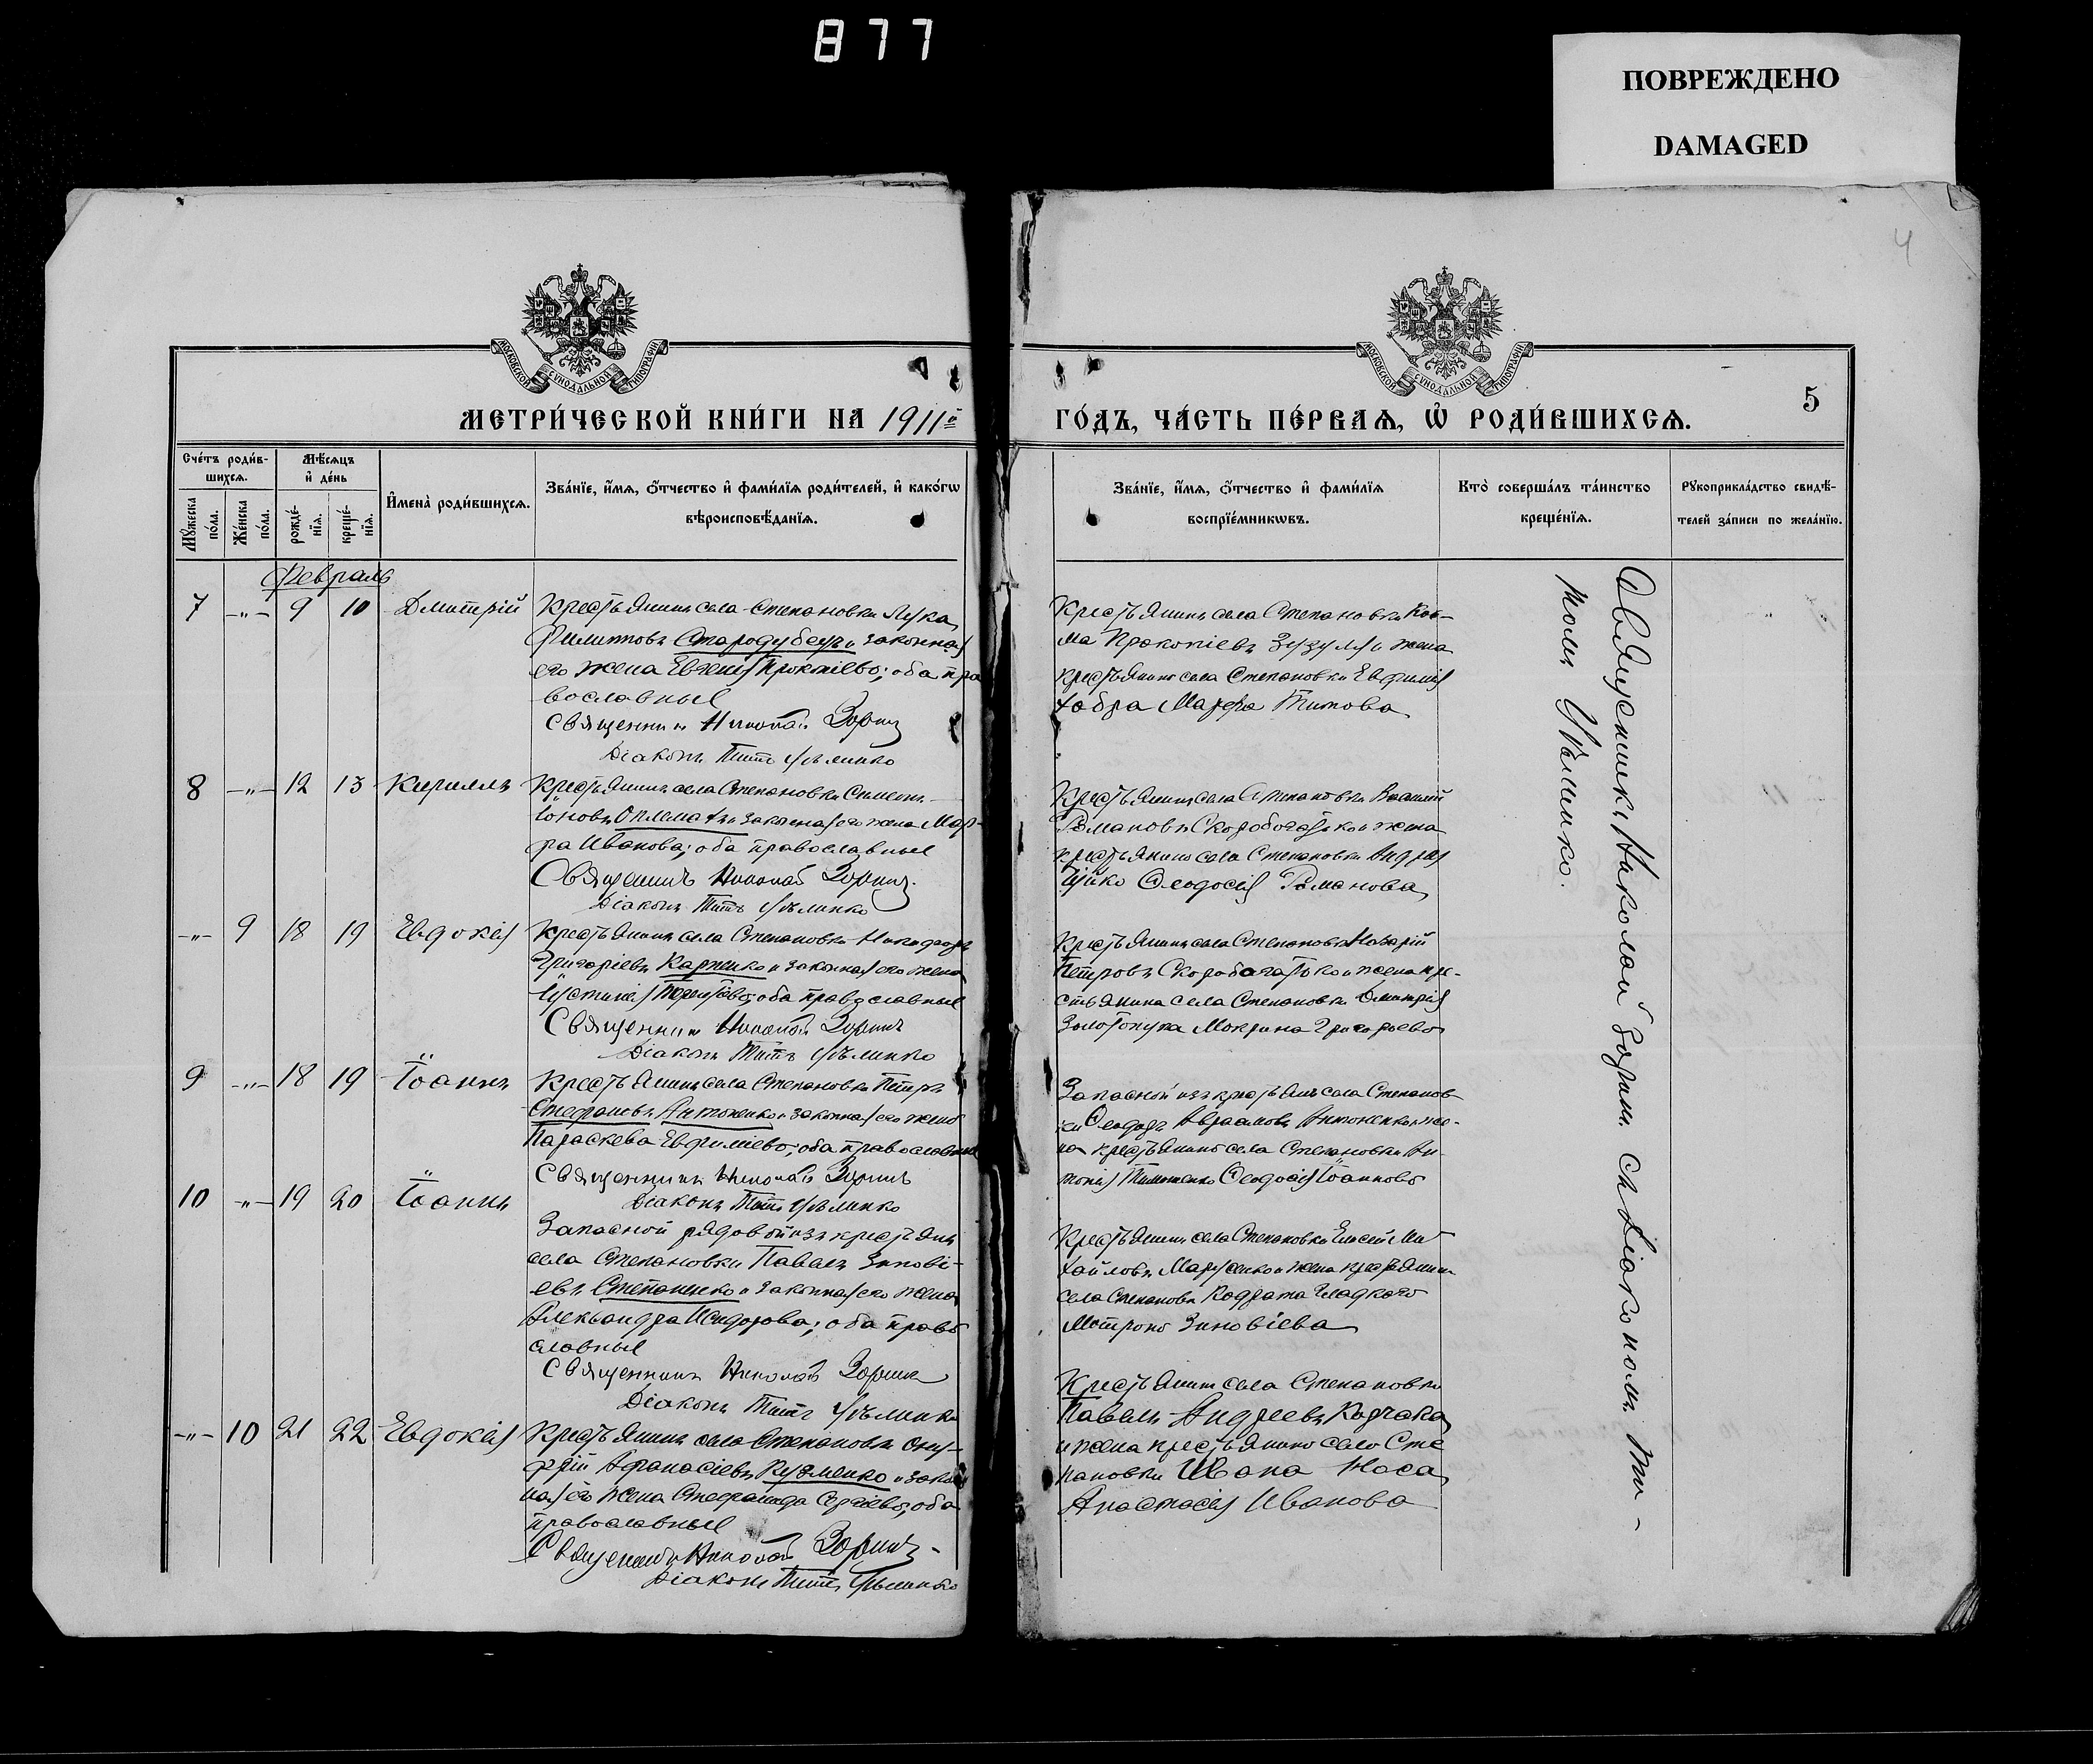 877
ПОВРЕЖДЕНО
DAMAGED
4
МОСКОВСКОЙ СѴНОДАЛЬНОЙ ТИПОГРАФІИ
МОСКОВСКОЙ СѴНОДАЛЬНОЙ ТИПОГРАФІИ
5
МЕТРИ́ЧЕСКОЙ КНИ́ГИ НА 1911й
ГО́ДЪ, ЧА́СТЬ ПЕ́РВАѦ, Ѡ҆ РОДИ́ВШИХСѦ.
Сче́тъ роди́в-
шихсѧ.
Мꙋ́жеска по́ла.
Же́нска по́ла.
Мѣ́сѧцъ
и҆ де́нь
рожде́-нїѧ.
креще́-нїѧ.
И҆мена̀ роди́вшихсѧ.
Зва́нїе, и҆́мѧ, ѻ҆́тчество и҆ фами́лїѧ роди́телей, и҆ како́гѡ
вѣроисповѣ́данїѧ.
Зва́нїе, и҆́мѧ, ѻ҆́тчество и҆ фами́лїѧ
воспрїе́мникѡвъ.
Кто̀ соверша́лъ та́инство
креще́нїѧ.
Рꙋкоприкла́дство свидѣ́-
телей за́писи по жела́нїю.
Февраль
7 -"- 9 10 Дмитрій
Крестьянинъ села Степановки Лука
Филиповъ Стародубецъ и законная
его жена Евгенія Прокопіева; оба пра
вославные
Священникъ Николай Зоринъ
Діаконъ Титъ
Крестьянинъ села Степановки Коз-
ма Прокопіевъ Зузуля и жена
крестьянина села Степановки Евфимія
Марѳа Титова
8 -"- 12 13 Кириллъ
Крестьянинъ села Степановки Симеонъ
Іоновъ и законная его жена Мар-
ѳа Иванова; оба православные
Священникъ Николай Зоринъ
Діаконъ Титъ
Крестьянинъ села Степановки Василій
Романовъ Скоробогатько и жена
крестьянина села Степановки Андрея
Ѳеодосія Романова
-"- 9 18 19 Евдокія
Крестьянинъ села Степановки Никифоръ
Григоріевъ Карпенко и законная его жена
Іустинія; оба православные
Священникъ Николай Зоринъ
Діаконъ Титъ
Крестьянинъ села Степановки Назарій
Петровъ Скоробогатько и жена кре-
стьянина села Степановки Димитрія
Золотопупа Мокрина Григорьева
9 -"- 18 19 Іоаннъ
Крестьянинъ села Степановки Петръ
Стефановъ Антоненко и законная его жена
Параскева Евфиміева; оба православные
Священникъ Николай Зоринъ
Діаконъ Титъ
Запасной изъ крестьянъ села Степанов-
ки Ѳеодоръ Антоненко и же-
на крестьянина села Степановки Ан-
тонія Тимошенко Ѳеодосія Іоаннова
10 -"- 19 20 Іоаннъ
Запасной рядовой изъ крестьянъ
села Степановки Павелъ Зиновіе-
евъ Степаненко и законная его жена
Александра Исидорова; оба право
славные
Священникъ Николай Зоринъ
Діаконъ Титъ
Крестьянинъ села Степановки Елисей Ми-
хайловъ Марусенко и жена крестьянина
села Степановки Кодрата Гладкого
Матрона Зиновіева
-"- 10 21 22 Евдокія
Крестьянинъ села Степановки Ону-
фрій Афанасіевъ Кузменко и закон
ная его жена Стефанида Сергіева; оба
православные
Священникъ Николай Зоринъ
Діаконъ Титъ
Крестьянинъ села Степановки
Павелъ Андреевъ Корчака
и жена крестьянина села Сте
пановки Ивана Носа
Анастасія Иванова
Священникъ Николай Зоринъ съ Діакономъ Ти-
томъ